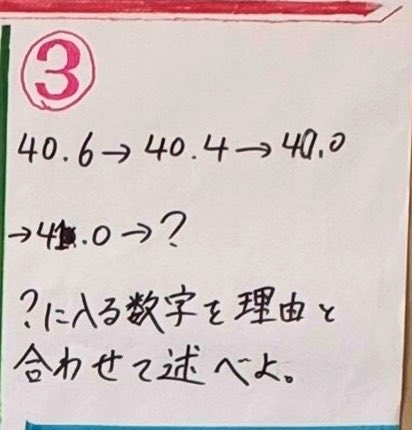 ③
40.6→40.4→40.0
→41.0→?
?に入る数字を理由と
合わせて述べよ。